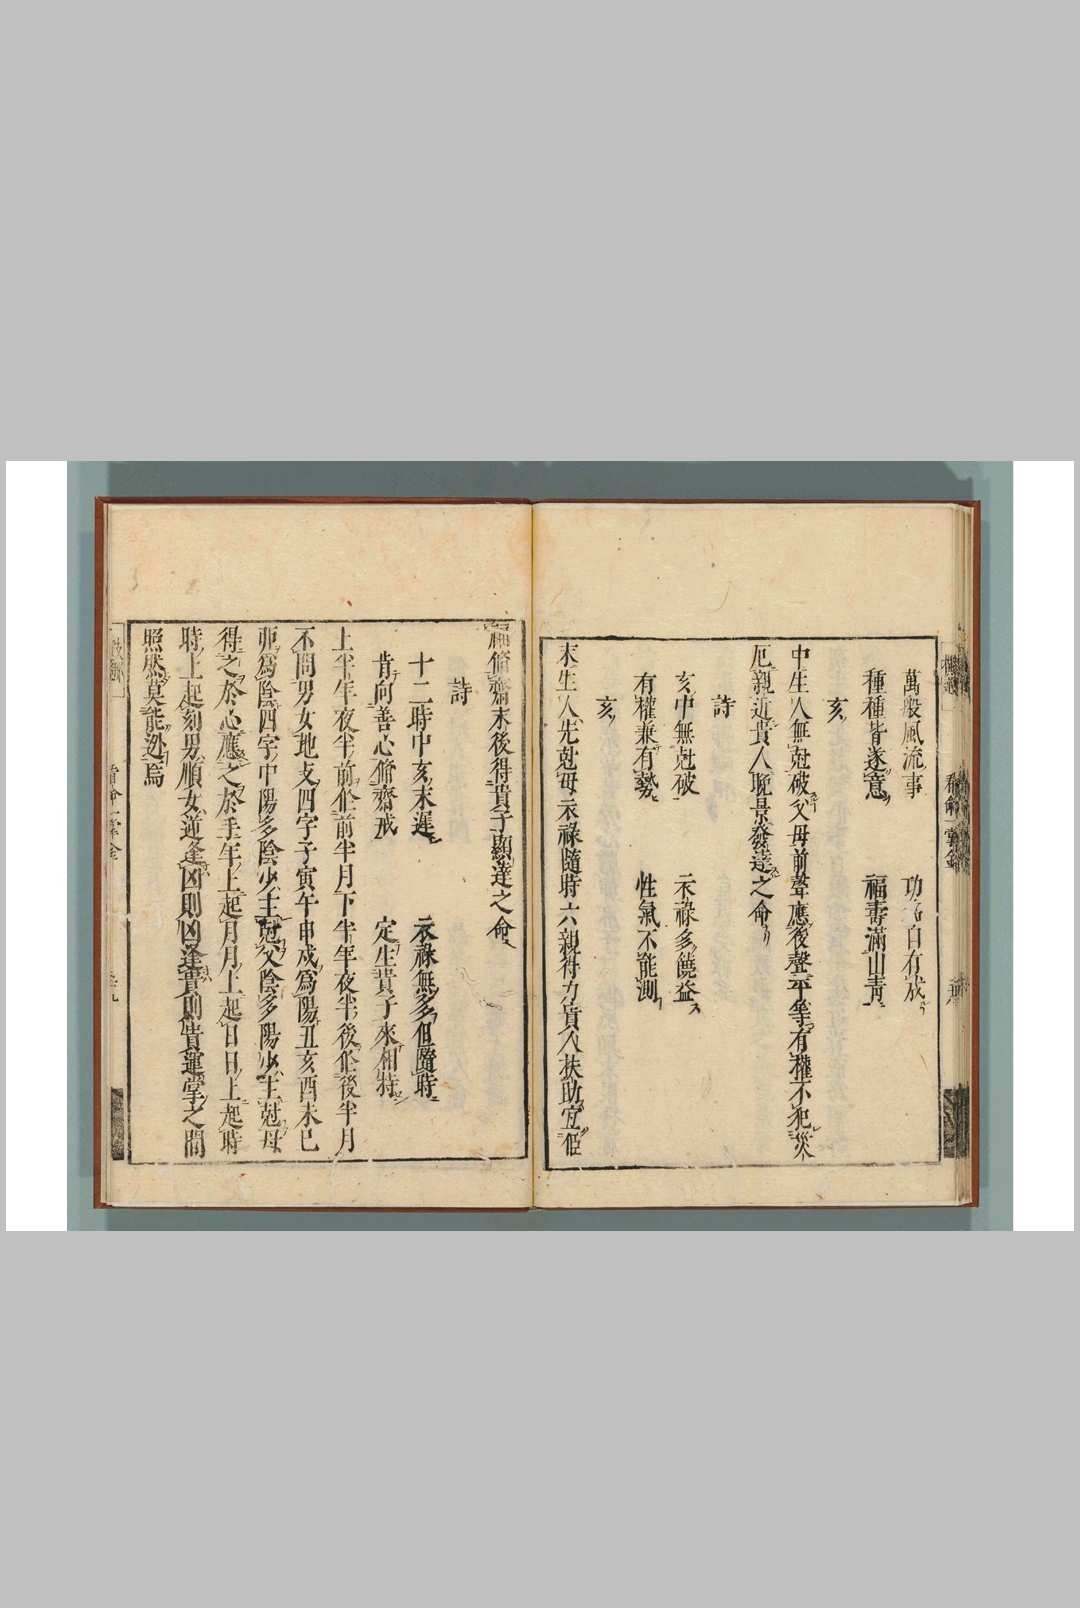 萬般風流事 功名自有成
種種皆遂意 福壽滿山青
亥
中生人無尅破父母前聲應後聲平等有權不犯災
厄親近貴人晚景發達之命
詩
亥中無尅破 衣祿多饒益
有權兼有勢 性氣不能測
亥
末生人先尅母衣祿隨時六親得力貴人扶助宜
修齋末後得貴子顯達之命
詩
十二時中亥末遲 衣祿無多但隨時
肯向善心脩齋戒 定生貴子來相持
上半年夜半前作前半月下半年夜半後作後半月
不問男女地支四字子寅午申戍為陽丑亥酉未巳
卯為陰四字中陽多陰少主尅父陰多陽少主尅母
得之於心應之於手年上起月月上起日日上起時
時上起刻男順女逆逢凶則凶逢貴則貴運掌之間
照然莫能迯焉
看命一掌金